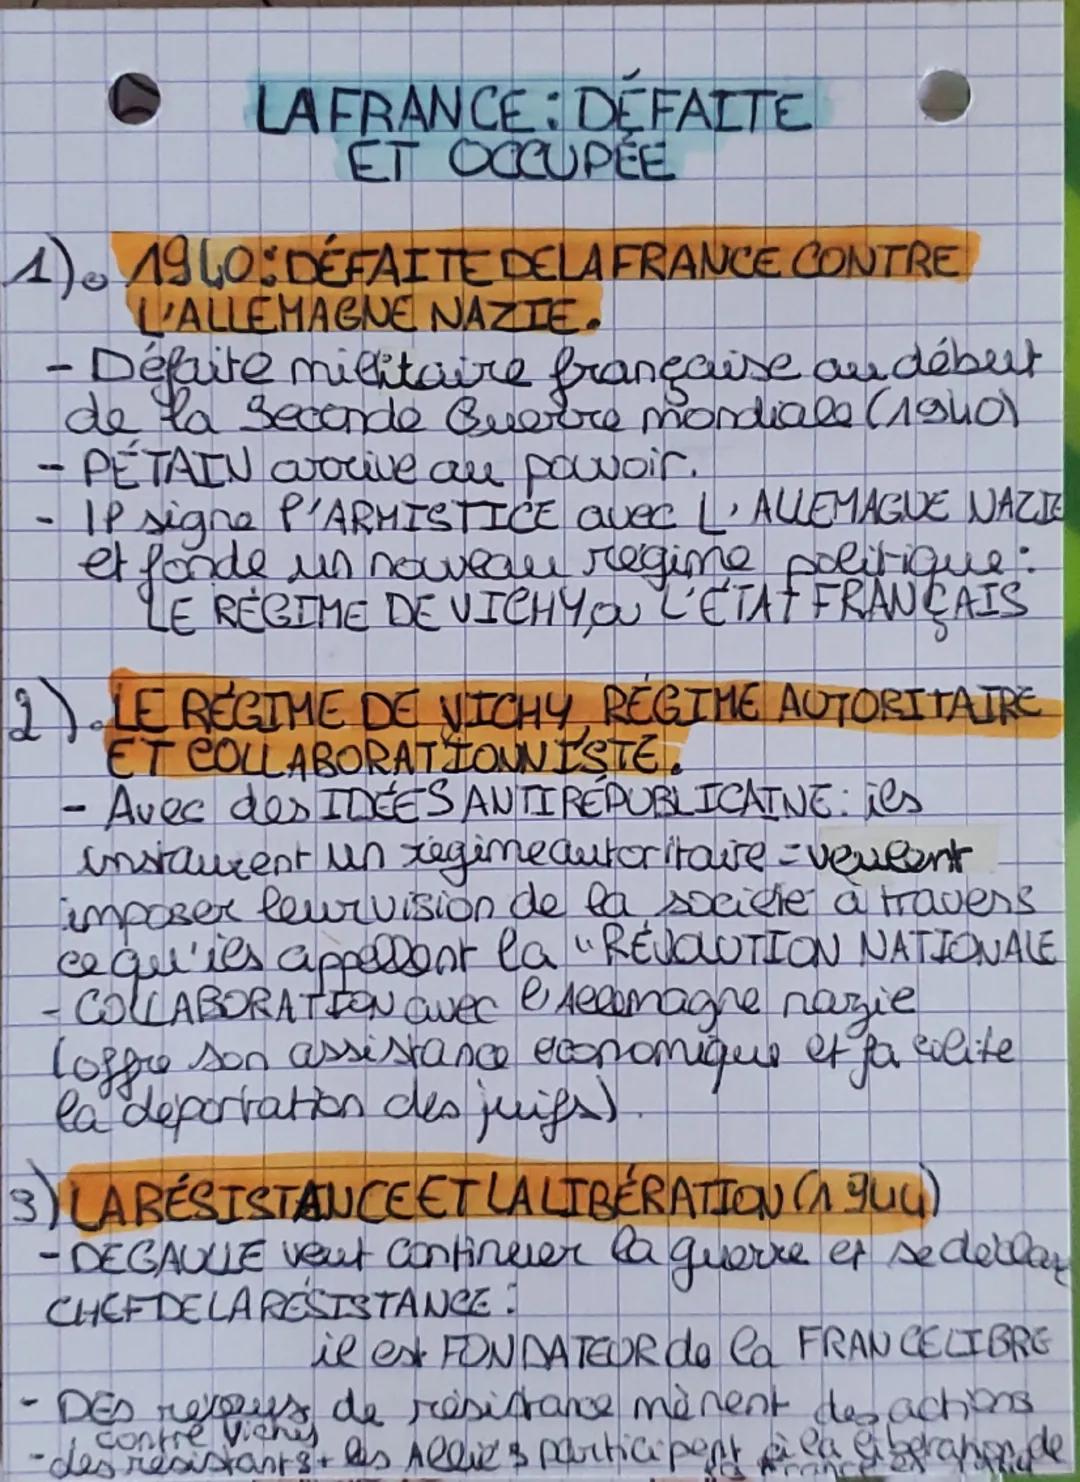 LA FRANCE : DÉFAITE
ET OCCUPÉE
1). 1940 : DÉFAITE DE LA FRANCE CONTRE
L'ALLEMAGNE NAZIE.
- Défaite militaire française au début
de la Seconde Guerre mondiale (1940)
- PÉTAIN arrive au pouvoir.
- Il signe l'ARMISTICE avec L'ALLEMAGNE NAZIE
et fonde un nouveau régime politique :
LE RÉGIME DE VICHY, ou L'ÉTAT FRANÇAIS
2). LE RÉGIME DE VICHY, RÉGIME AUTORITAIRE
ET COLLABORATIONNISTE.
- Avec des IDÉES ANTIRÉPUBLICAINE : ils
instaurent un régime autoritaire = veulent
imposer leur vision de la société à travers
ce qu'ils appellent la "RÉVOLUTION NATIONALE
- COLLABORATION avec l'Allemagne nazie
(offre son assistance economique et facilite
la déportation des juifs).
3) LA RÉSISTANCE ET LA LIBÉRATION (1944)
- DEGAULLE veut continuer la guerre et se déclar
CHEF DE LA RÉSISTANCE :
il est FONDATEUR de la FRANCE LIBRE
- DES de résistance mènent des actions
contre Vichy
- des résistants + les Alliés participent à la libération de
la France